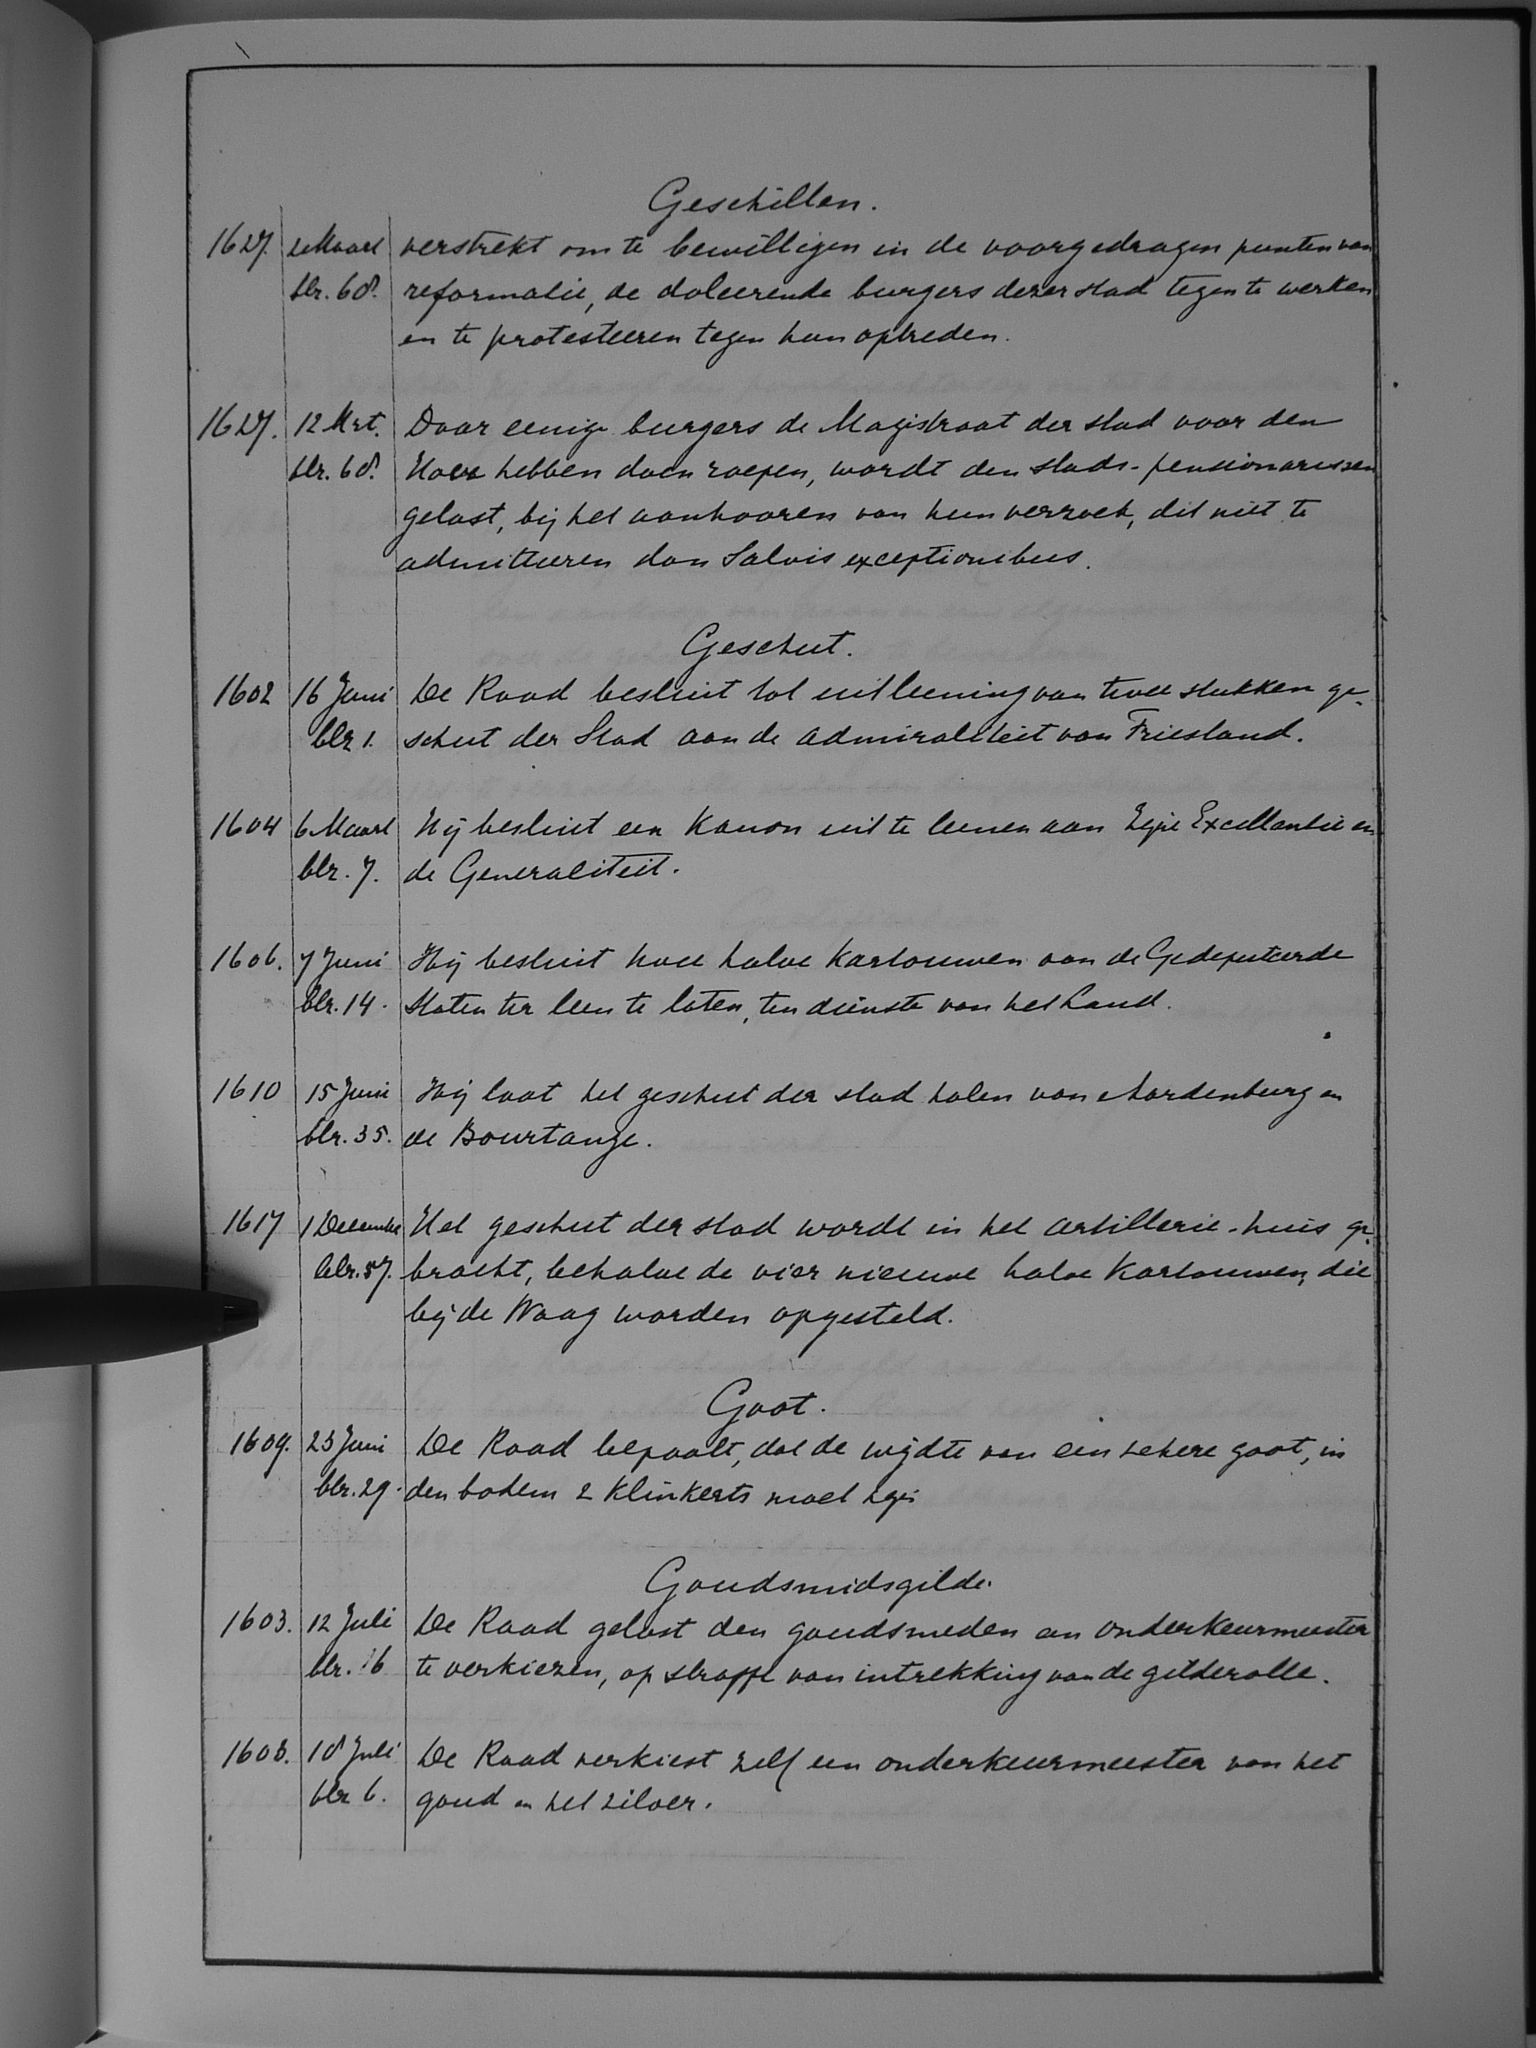 Geschillen.
1627. 2 Maart verstrekt om te bewilligen in de voorgedragen punten van
blz. 68. reformatie, de doleerende burgers dezer stad tegen te werken
en te protesteeren tegen hun optreden.
1627. 12 Mrt. Daar eenige burgers de Magistraat der stad voor den
blz. 68. Hove hebben doen roepen, wordt den stads-pensionarissen
gelast, bij het aanhooren van hun verzoek, dit niet te
admitteeren dan Salvis exceptionibus.
Geschut.
1602 16 Juni De Raad besluit tot uitleening van twee stukken ge-
blz 1. schut der Stad aan de admiraliteit van Friesland.
1604 6 Maart Hij besluit een Kanon uit te leenen aan Zijne Excellantie en
blz. 7. de Generaliteit.
1606. 7 Juni Hij besluit twee halve Kartouwen aan de Gedeputeerde
blz. 14. Staten ter leen te laten, ten dienste van het Land.
1610 15 Juni Hij laat het geschut der stad halen van Aardenburg en
blz. 35. de Bourtange.
1617 1 December Het geschut der stad wordt in het artillerie-huis ge-
blz. 57. bracht, behalve de vier nieuwe halve Kartouwen, die
bij de Waag worden opgesteld.
Goot.
1609. 23 Juni De Raad bepaalt, dat de wijdte van een zekere goot, in
blz. 29. den bodem 2 Klinkerts moet zijn
Goudsmidsgilde.
1603. 12 Juli De Raad gelast den goudsmeden een onderkeurmeester
blz. 6 te verkiezen, op straffe van intrekking van de gilderolle.
1603. 18 Juli De Raad verkiest zelf een onderkeurmeester van het
blz 6. goud en het zilver.